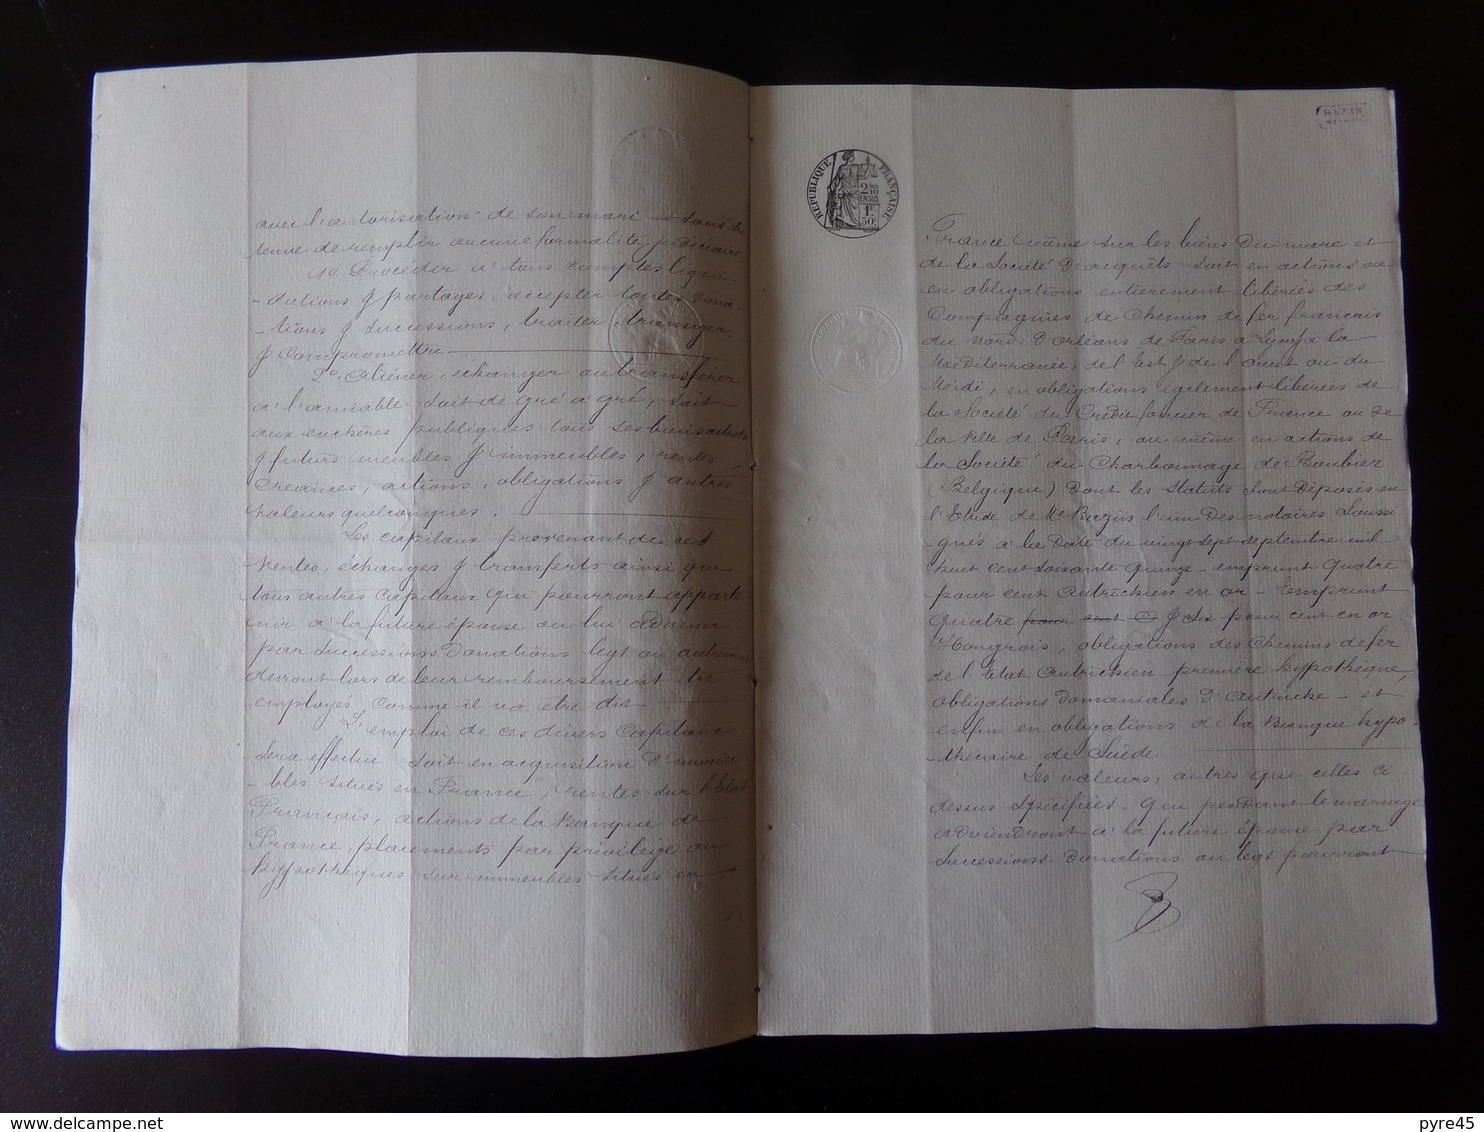 avec l'autorisation de son mari et sans être
tenue de remplir aucune formalité judiciaire.
1o. Procéder à tous comptes liqui
-dations & partages, accepter toutes dona-
-tions & successions, traiter, transiger
& compromettre
2o. Aliéner, échanger ou transférer
à l'amiable soit de gré à gré, soit
aux enchères publiques tous ses biens actuels
& futurs meubles & immeubles, rentes,
créances, actions, obligations & autres
valeurs quelconques.
Les capitaux provenant de ces
ventes, échanges & transferts ainsi que
tous autres capitaux qui pourront apparte
nir à la future épouse ou lui advenir
par successions donations legs ou autrement
devront lors de leur remboursement être
employés, comme il va être dit
L'emploi de ces divers capitaux
sera effectué soit en acquisition d'immeu-
-bles situés en France, rentes sur l'Etat
Français, actions de la Banque de
France, placements par privilège ou
hypothèques sur immeubles situés en
REPUBLIQUE FRANÇAISE
2/10
EN SUS
1F
50c
BAZIN
France même sur les biens du mari et
de la Société d'acquêts soit en actions ou
en obligations entièrement libérées des
Compagnies de Chemin de fer français
du Nord, d'Orléans de Paris à Lyon & à la
Méditerranée, de l'Est & de l'Ouest ou du
Midi, en obligations également libérées de
la Société du Crédit foncier de France ou de
la Ville de Paris, ou même en actions de
la Société du Charbonnage de Boubier
(Belgique) dont les statuts sont déposés en
l'Etude de Me Bazin l'un des notaires soussi
-gnés à la date du vingt sept septembre mil
huit cent soixante quinze - emprunt quatre
pour cent Autrichien en or - Emprunt
quatre pour cent & six pour cent en or
Hongrois, obligations des Chemins de fer
de l'Etat Autrichien première hypothèque,
obligations domaniales d'Autriche - et
enfin en obligations de la Banque hypo-
-thécaire de Suède
Les valeurs, autres que celles ci-
dessus spécifiées, qui pendant le mariage
adviendront à la future épouse par
successions, donations ou legs pourront
pyre45